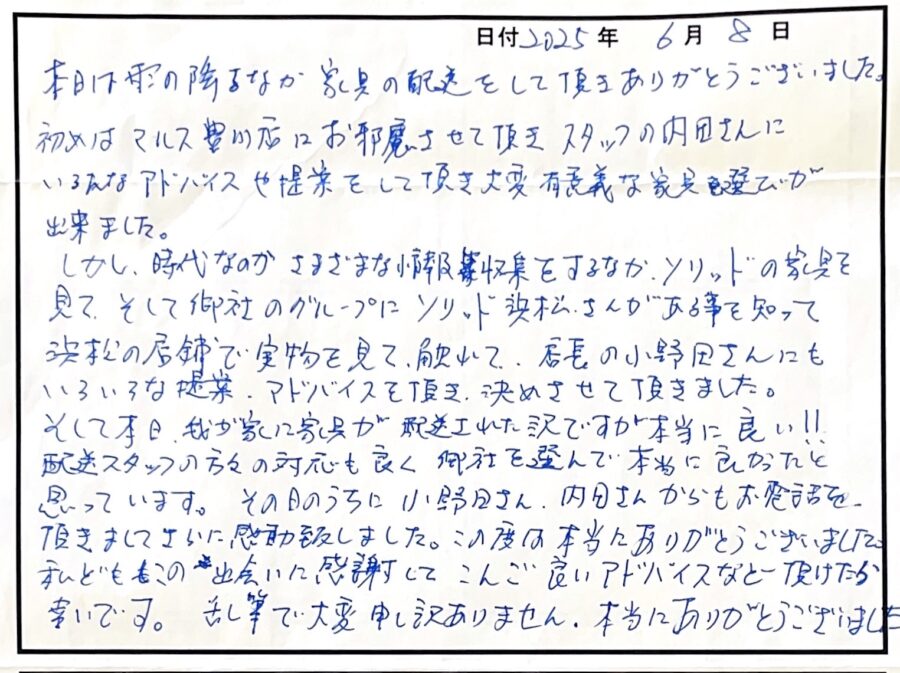 日付 2025 年 6 月 8 日
本日は雨の降るなか 家具の配送をして頂きありがとうございました。
初めは マルス豊川店にお邪魔させて頂き スタッフの内田さんに
いろんなアドバイスや提案をして頂き大変有意義な家具選びが
出来ました。
しかし、時代なのか さまざまな情報収集をするなか、ソリッドの家具を
見て、そして御社のグループに ソリッド浜松さんがある事を知って
浜松の店舗で実物を見て、触れて、店長の小野田さんにも
いろいろな提案、アドバイスを頂き、決めさせて頂きました。
そして本日、我が家に家具が配送された訳ですが本当に良い!!
配送スタッフの方々の対応も良く 御社を選んで本当に良かったと
思っています。その日のうちに 小野田さん、内田さんからもお電話を
頂きましてさらに感動致しました。この度は本当にありがとうございました。
私どももこの出会いに感謝して こんご良いアドバイスなど頂けたら
幸いです。苦し筆で大変申し訳ありません、本当にありがとうございました